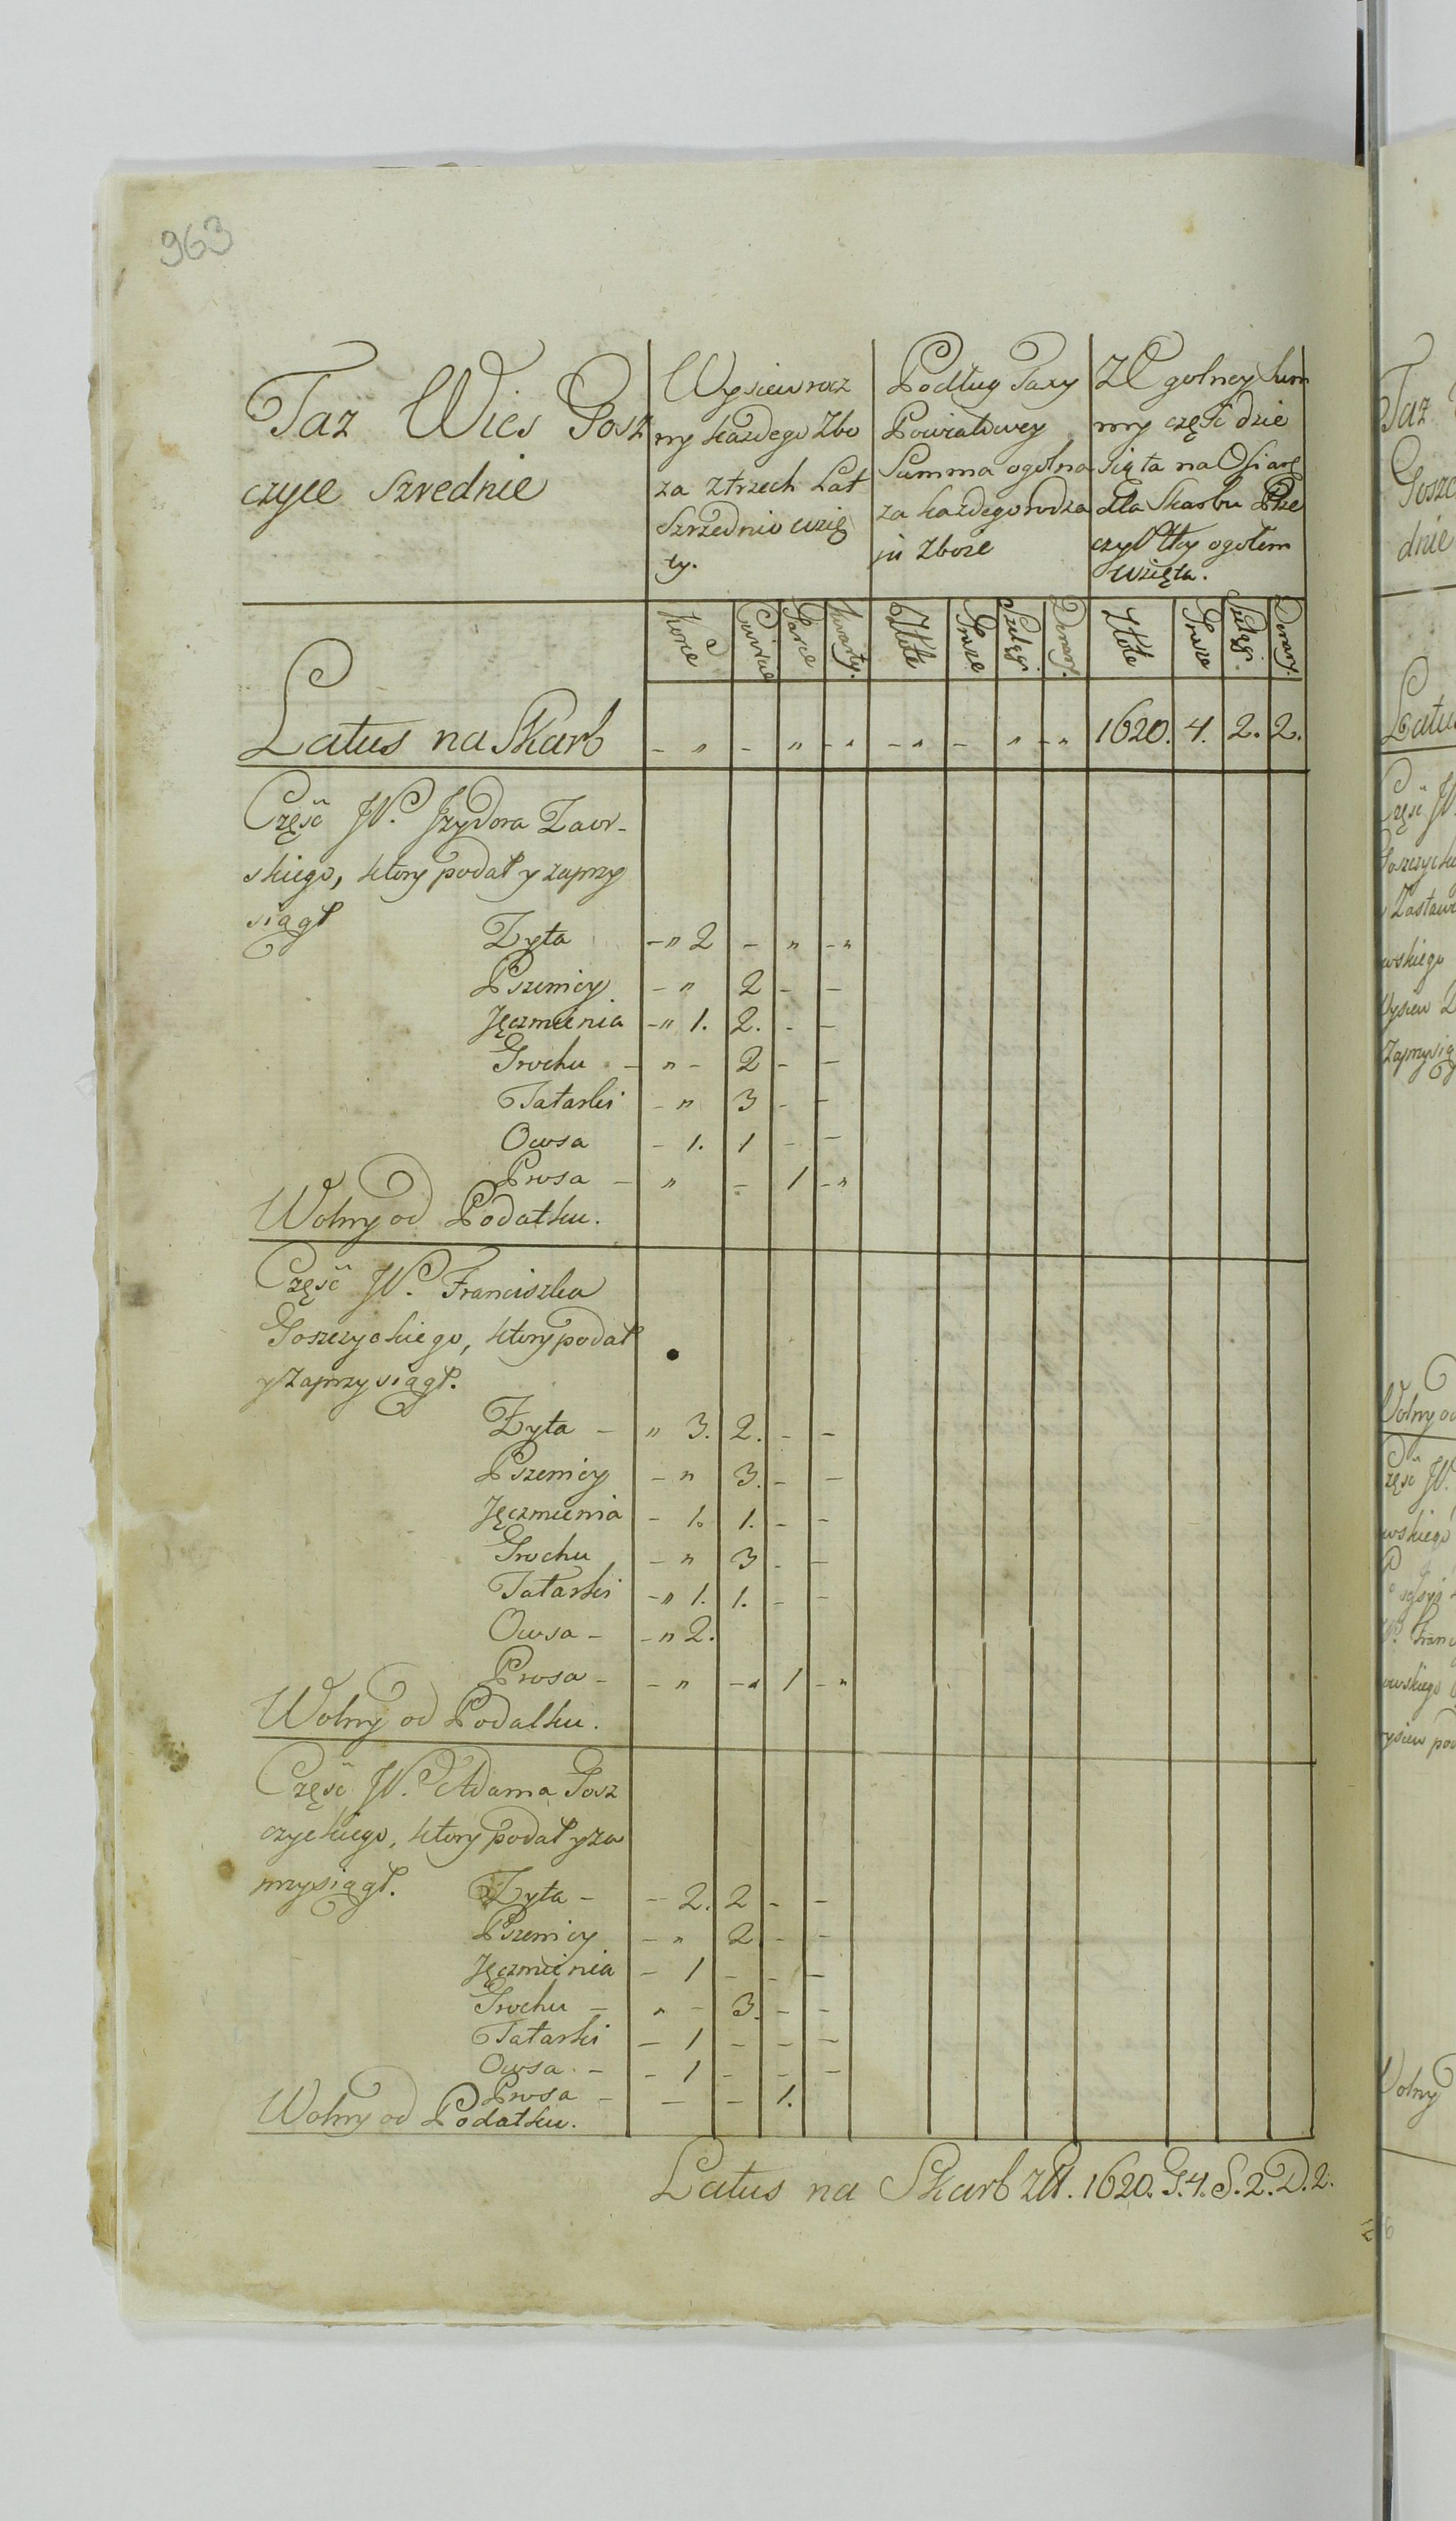 963
Taz Wies Gosz
czyce Szrednie
Wysiew rocz
ny każdego Zbo
za z trzech Lat
Szrzednio wzię
ty.
Podług Taxy
Powiatowey
Summa ogolna
za każdego rodza
iu Zboże
Z Ogolney Sum
my część dzie
siąta na Ofiarę
dla Skarbu Rze
czyPltey ogołem
wzięta.
Korce Cwierci Garce Kwarty. Złote Grosze Szelągi Denary. Złote Grosze Szelągi. Denary.
Latus na Skarb - " - " - " - " - " - " 1620. 4. 2. 2.
Część W. Jzydora Zawr-
skiego, ktory podał y zaprzy
siągł
Zyta - " 2 - " - "
Pszenicy - " 2 - -
Jęczmienia - " 1. 2. - -
Grochu - " - 2 - -
Tatarki - " 3 - -
Owsa - 1. 1 - -
Prosa - " - 1 - "
Wolny od Podatku.
Część W. Franciszka
Goszczyckiego, ktory podał
y zaprzysiągł.
Zyta - " 3. 2. - -
Pszenicy - " 3. - -
Jęczmienia - 1. 1. - -
Grochu - " 3 - -
Tatarki - " 1. 1. - -
Owsa - - " 2.
Prosa - - " - " 1 - "
Wolny od Podatku.
Część W. Adama Gosz
czyckiego, ktory podał y za
przysiągł.
Zyta - - 2. 2 - -
Pszenicy - " 2. - -
Jęczmienia - 1 - - -
Grochu - " - 3. - -
Tatarki - 1 - - -
Owsa - - 1 - - -
Prosa - - - 1.
Wolny od Podatku.
Latus na Skarb Zł. 1620. G. 4. S. 2. D. 2.
Taz
Goszc
dnie
Latu
Część W.
Goszczycki
Zastaw
wskiego
Wysiew
Zaprzysią
Wolny od
Część W.
wskiego
W. Franc
owskiego
wysiew pod
Wolny